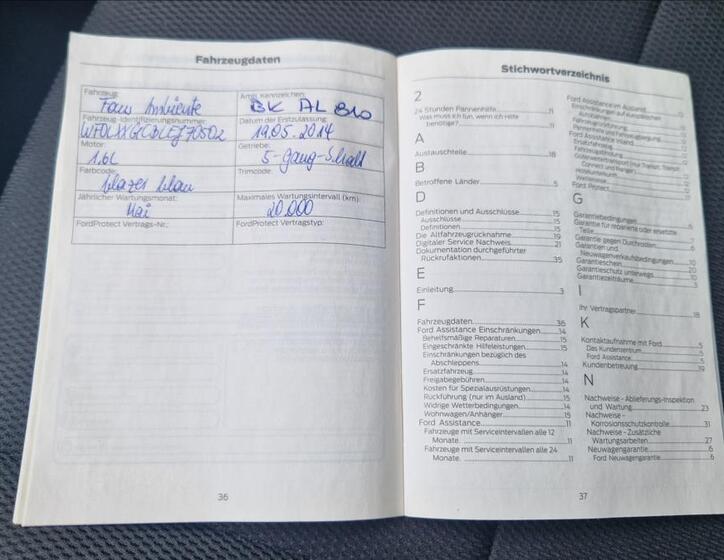 Fahrzeugdaten
Fahrzeug:
Amtl. Kennzeichen:
Focus Ambiente
BK AL 810
Fahrzeug-Identifizierungsnummer:
Datum der Erstzulassung:
19.05.2014
Motor:
Getriebe:
1.6L
5-Gang-Schalt
Farbcode:
Trimcode:
blazer blau
Jährlicher Wartungsmonat:
Maximales Wartungsintervall (km):
Mai
20.000
FordProtect Vertrags-Nr.:
FordProtect Vertragstyp:
36
Stichwortverzeichnis
2
24 Stunden Pannenhilfe 11
Was muss ich tun, wenn ich Hilfe
benötige? 11
A
Austauschteile 18
B
Betroffene Länder 5
D
Definitionen und Ausschlüsse 15
Ausschlüsse 15
Definitionen 15
Die Altfahrzeugrücknahme 19
Digitaler Service Nachweis 21
Dokumentation durchgeführter
Rückrufaktionen 35
E
Einleitung 3
F
Fahrzeugdaten 36
Ford Assistance Einschränkungen 14
Behelfsmäßige Reparaturen 15
Eingeschränkte Hilfeleistungen 15
Einschränkungen bezüglich des
Abschleppens 14
Ersatzfahrzeug 14
Freigabegebühren 14
Kosten für Spezialausrüstungen 14
Rückführung (nur im Ausland) 15
Widrige Wetterbedingungen 14
Wohnwagen/Anhänger 15
Ford Assistance 11
Fahrzeuge mit Serviceintervallen alle 12
Monate 11
Fahrzeuge mit Serviceintervallen alle 24
Monate 11
Ford Assistance im Ausland
Einschränkungen auf europäischen
Autobahnen
Fahrzeugrückführung
Pannenhilfe und Fahrzeugbergung
Ford Assistance Inland
Ersatzfahrzeug
Fahrzeugabholung
Connect und Ranger)
Hotelunterkunft
Weiterreise
Ford Protect
G
Garantiebedingungen
Garantie für reparierte oder ersetzte
Teile
Garantie gegen Durchrosten 7
Garantien und
Neuwagenverkaufsbedingungen 10
Garantieschein 20
Garantieschutz unterwegs 10
Garantiezeiträume 3
I
Ihr Vertragspartner 18
K
Kontaktaufnahme mit Ford 5
Das Kundenzentrum 5
Ford Assistance 5
Kundenbetreuung 19
N
Nachweise - Ablieferungs-Inspektion
und Wartung 23
Nachweise -
Korrosionsschutzkontrolle 31
Nachweise - Zusätzliche
Wartungsarbeiten 27
Neuwagengarantie 6
Ford Neuwagengarantie 6
37